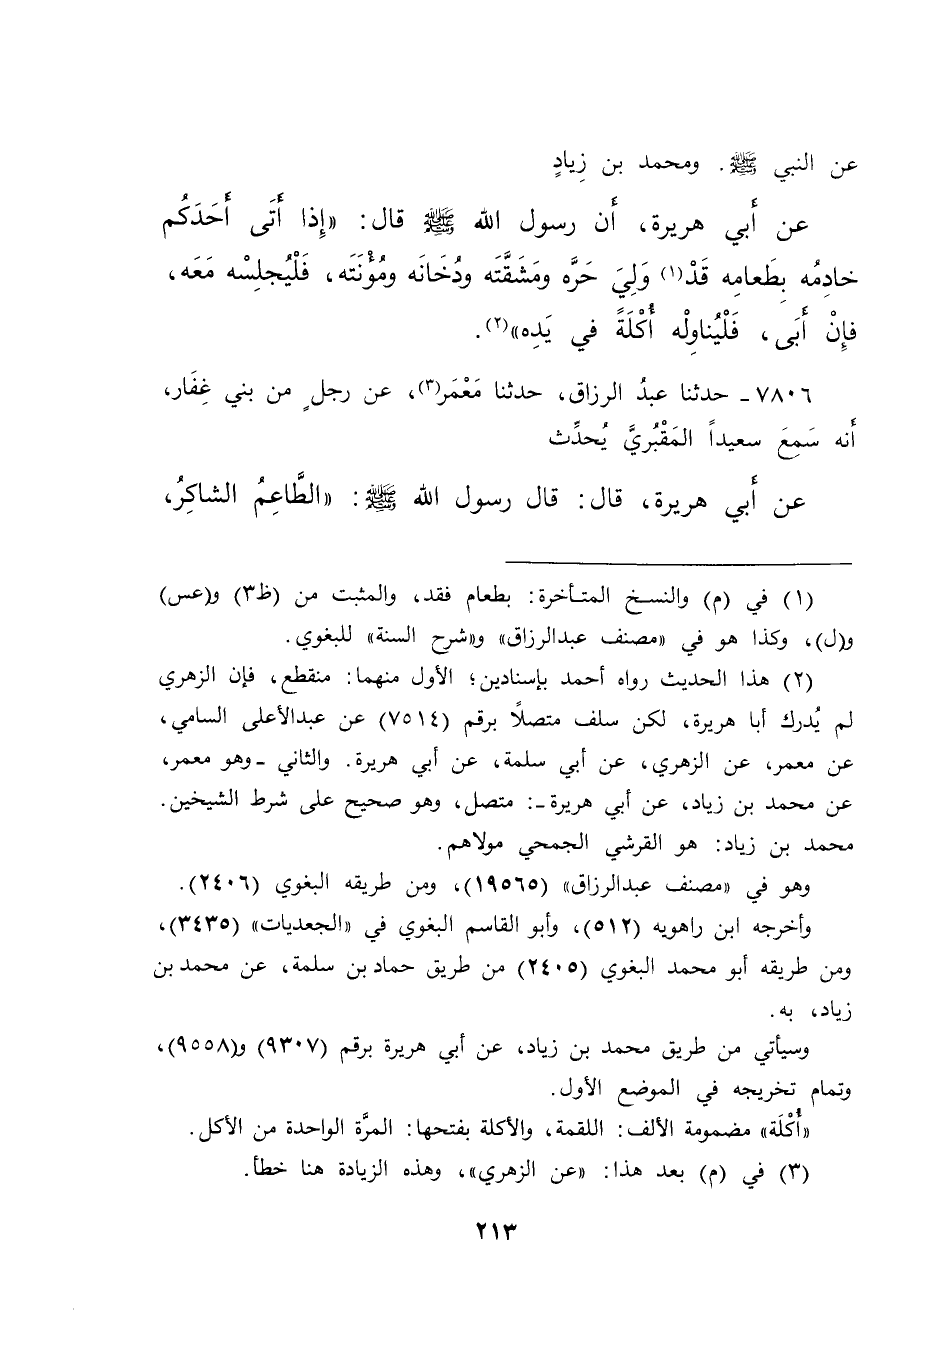 عن النبي ﷺ. ومحمد بن زِيادٍ
عن أَبي هريرة، أَن رسول الله ﷺ قال: «إِذا أَتَى أَحَدَكُم
خادِمُه بِطَعامِه قَدْ(١) وَلِيَ حَرَّه ومَشَقَّتَه ودُخَانَه ومُؤْنَتَه، فَلْيُجلِسْه مَعَه،
فإِنْ أَبَى، فَلْيُناوِلْه أُكْلَةً في يَدِه»(٢).
٧٨٠٦ـ حدثنا عبدُ الرزاق، حدثنا مَعْمَر(٣)، عن رجلٍ من بني غِفَار،
أَنه سَمِعَ سعيداً المَقْبُريَّ يُحدِّث
عن أَبي هريرة، قال: قال رسول الله ﷺ: «الطَّاعِمُ الشاكِرُ،
(١) في (م) والنسخ المتأخرة: بطعام فقد، والمثبت من (ظ٣) و(عس)
و(ل)، وكذا هو في «مصنف عبدالرزاق» و«شرح السنة» للبغوي.
(٢) هذا الحديث رواه أحمد بإسنادين؛ الأول منهما: منقطع، فإن الزهري
لم يُدرك أبا هريرة، لكن سلف متصلًا برقم (٧٥١٤) عن عبدالأعلى السامي،
عن معمر، عن الزهري، عن أبي سلمة، عن أبي هريرة. والثاني ـ وهو معمر،
عن محمد بن زياد، عن أبي هريرة ـ: متصل، وهو صحيح على شرط الشيخين.
محمد بن زياد: هو القرشي الجمحي مولاهم.
وهو في «مصنف عبدالرزاق» (١٩٥٦٥)، ومن طريقه البغوي (٢٤٠٦).
وأخرجه ابن راهويه (٥١٢)، وأبو القاسم البغوي في «الجعديات» (٣٤٣٥)،
ومن طريقه أبو محمد البغوي (٢٤٠٥) من طريق حماد بن سلمة، عن محمد بن
زياد، به.
وسيأتي من طريق محمد بن زياد، عن أبي هريرة برقم (٩٣٠٧) و(٩٥٥٨)،
وتمام تخريجه في الموضع الأول.
«أُكْلَة» مضمومة الألف: اللقمة، والأكلة بفتحها: المرَّة الواحدة من الأكل.
(٣) في (م) بعد هذا: «عن الزهري»، وهذه الزيادة هنا خطأ.
٢١٣